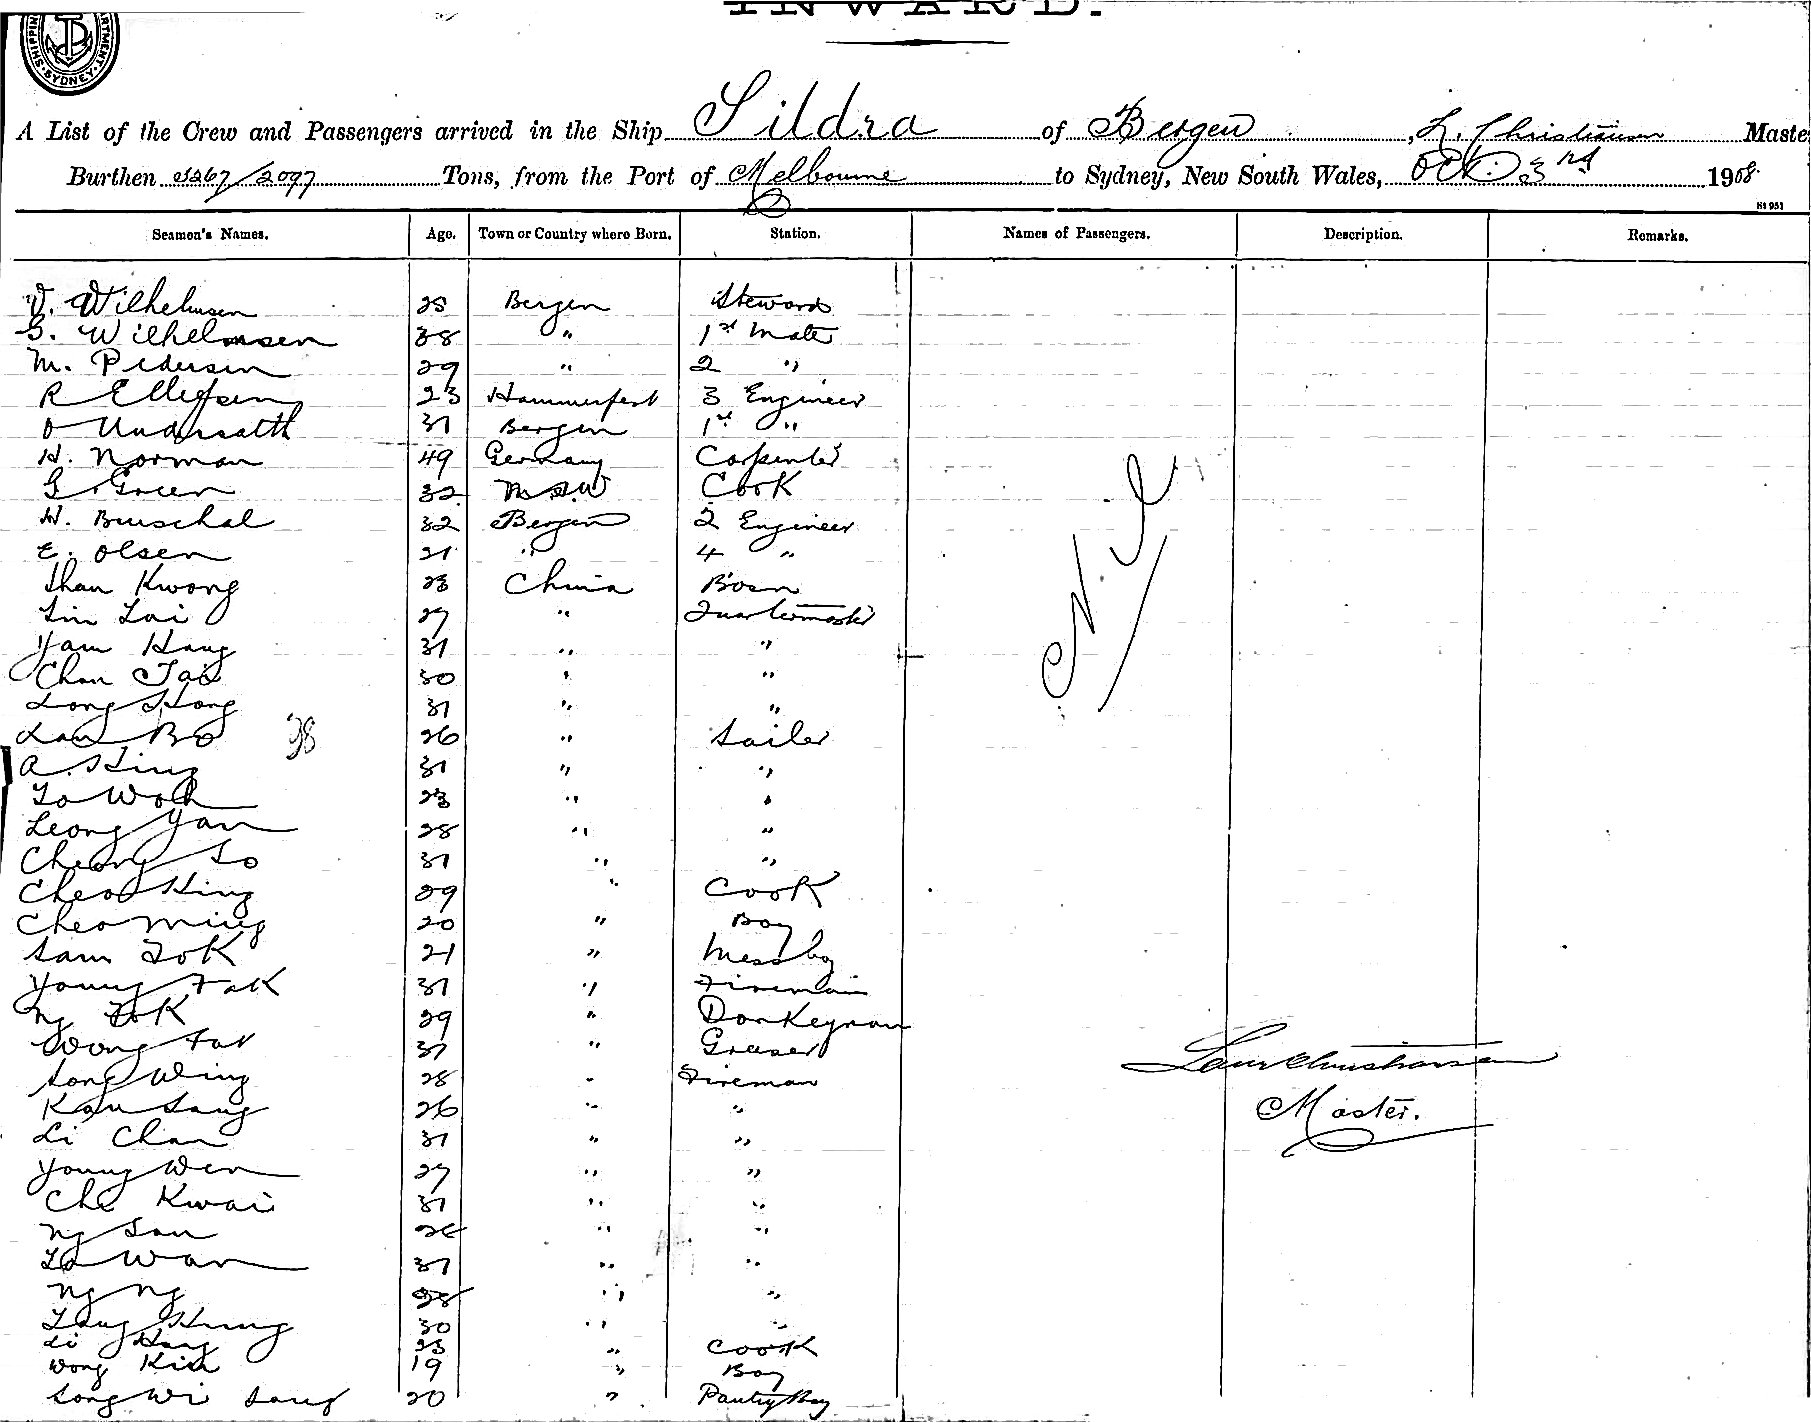 INWARD.
SHIPPING DEPARTMENT. SYDNEY.
A List of the Crew and Passengers arrived in the Ship Sildra of Bergen, L. Christiansen Master
Burthen 3267/2097 Tons, from the Port of Melbourne to Sydney, New South Wales, Oct. 3rd 1908.
Seamen's Names. Age. Town or Country where Born. Station. Names of Passengers. Description. Remarks.
V. Wilhelmsen 25 Bergen Steward
G. Wilhelmsen 38 " 1st Mate
M. Pedersen 29 " 2 "
R Ellefsen 23 Hammerfest 3 Engineer
O 31 Bergen 1st "
H. Norman 49 Germany Carpenter
G. Green 32 N.S.W Cook
H. Buschal 32 Bergen 2 Engineer
E. Olsen 21 " 4 "
Shan Kwong 28 China Bosn
Lin Lai 27 " Quartermaster
Yam Hang 31 " "
Chan Tai 30 " "
Long Hong 31 " "
Lau Bo 38 26 " Sailor
A. Hing 31 " "
Lo Woh 23 " "
Leong Yan 28 " "
Cheong So 31 " "
Cheo Hing 29 " Cook
Cheo Ming 20 " Boy
Sam Fok 21 " Messboy
Young Fak 31 " Fireman
Ng Fok 29 " Donkeyman
Wong Fat 31 " Greaser
Song Wing 28 " Fireman
Kau Sang 26 " "
Li Chan 31 " "
Young Wen 27 " "
Che Kwai 31 " "
Ng San 26 " "
Lo Wan 31 " "
Ng Ng 28 " "
Tang Hung 30 " "
Li Hang 23 " Cook
Wong Kin 19 " Boy
Song Wi Sang 20 " Pantry Boy
Nil
Laur Christiansen
Master.